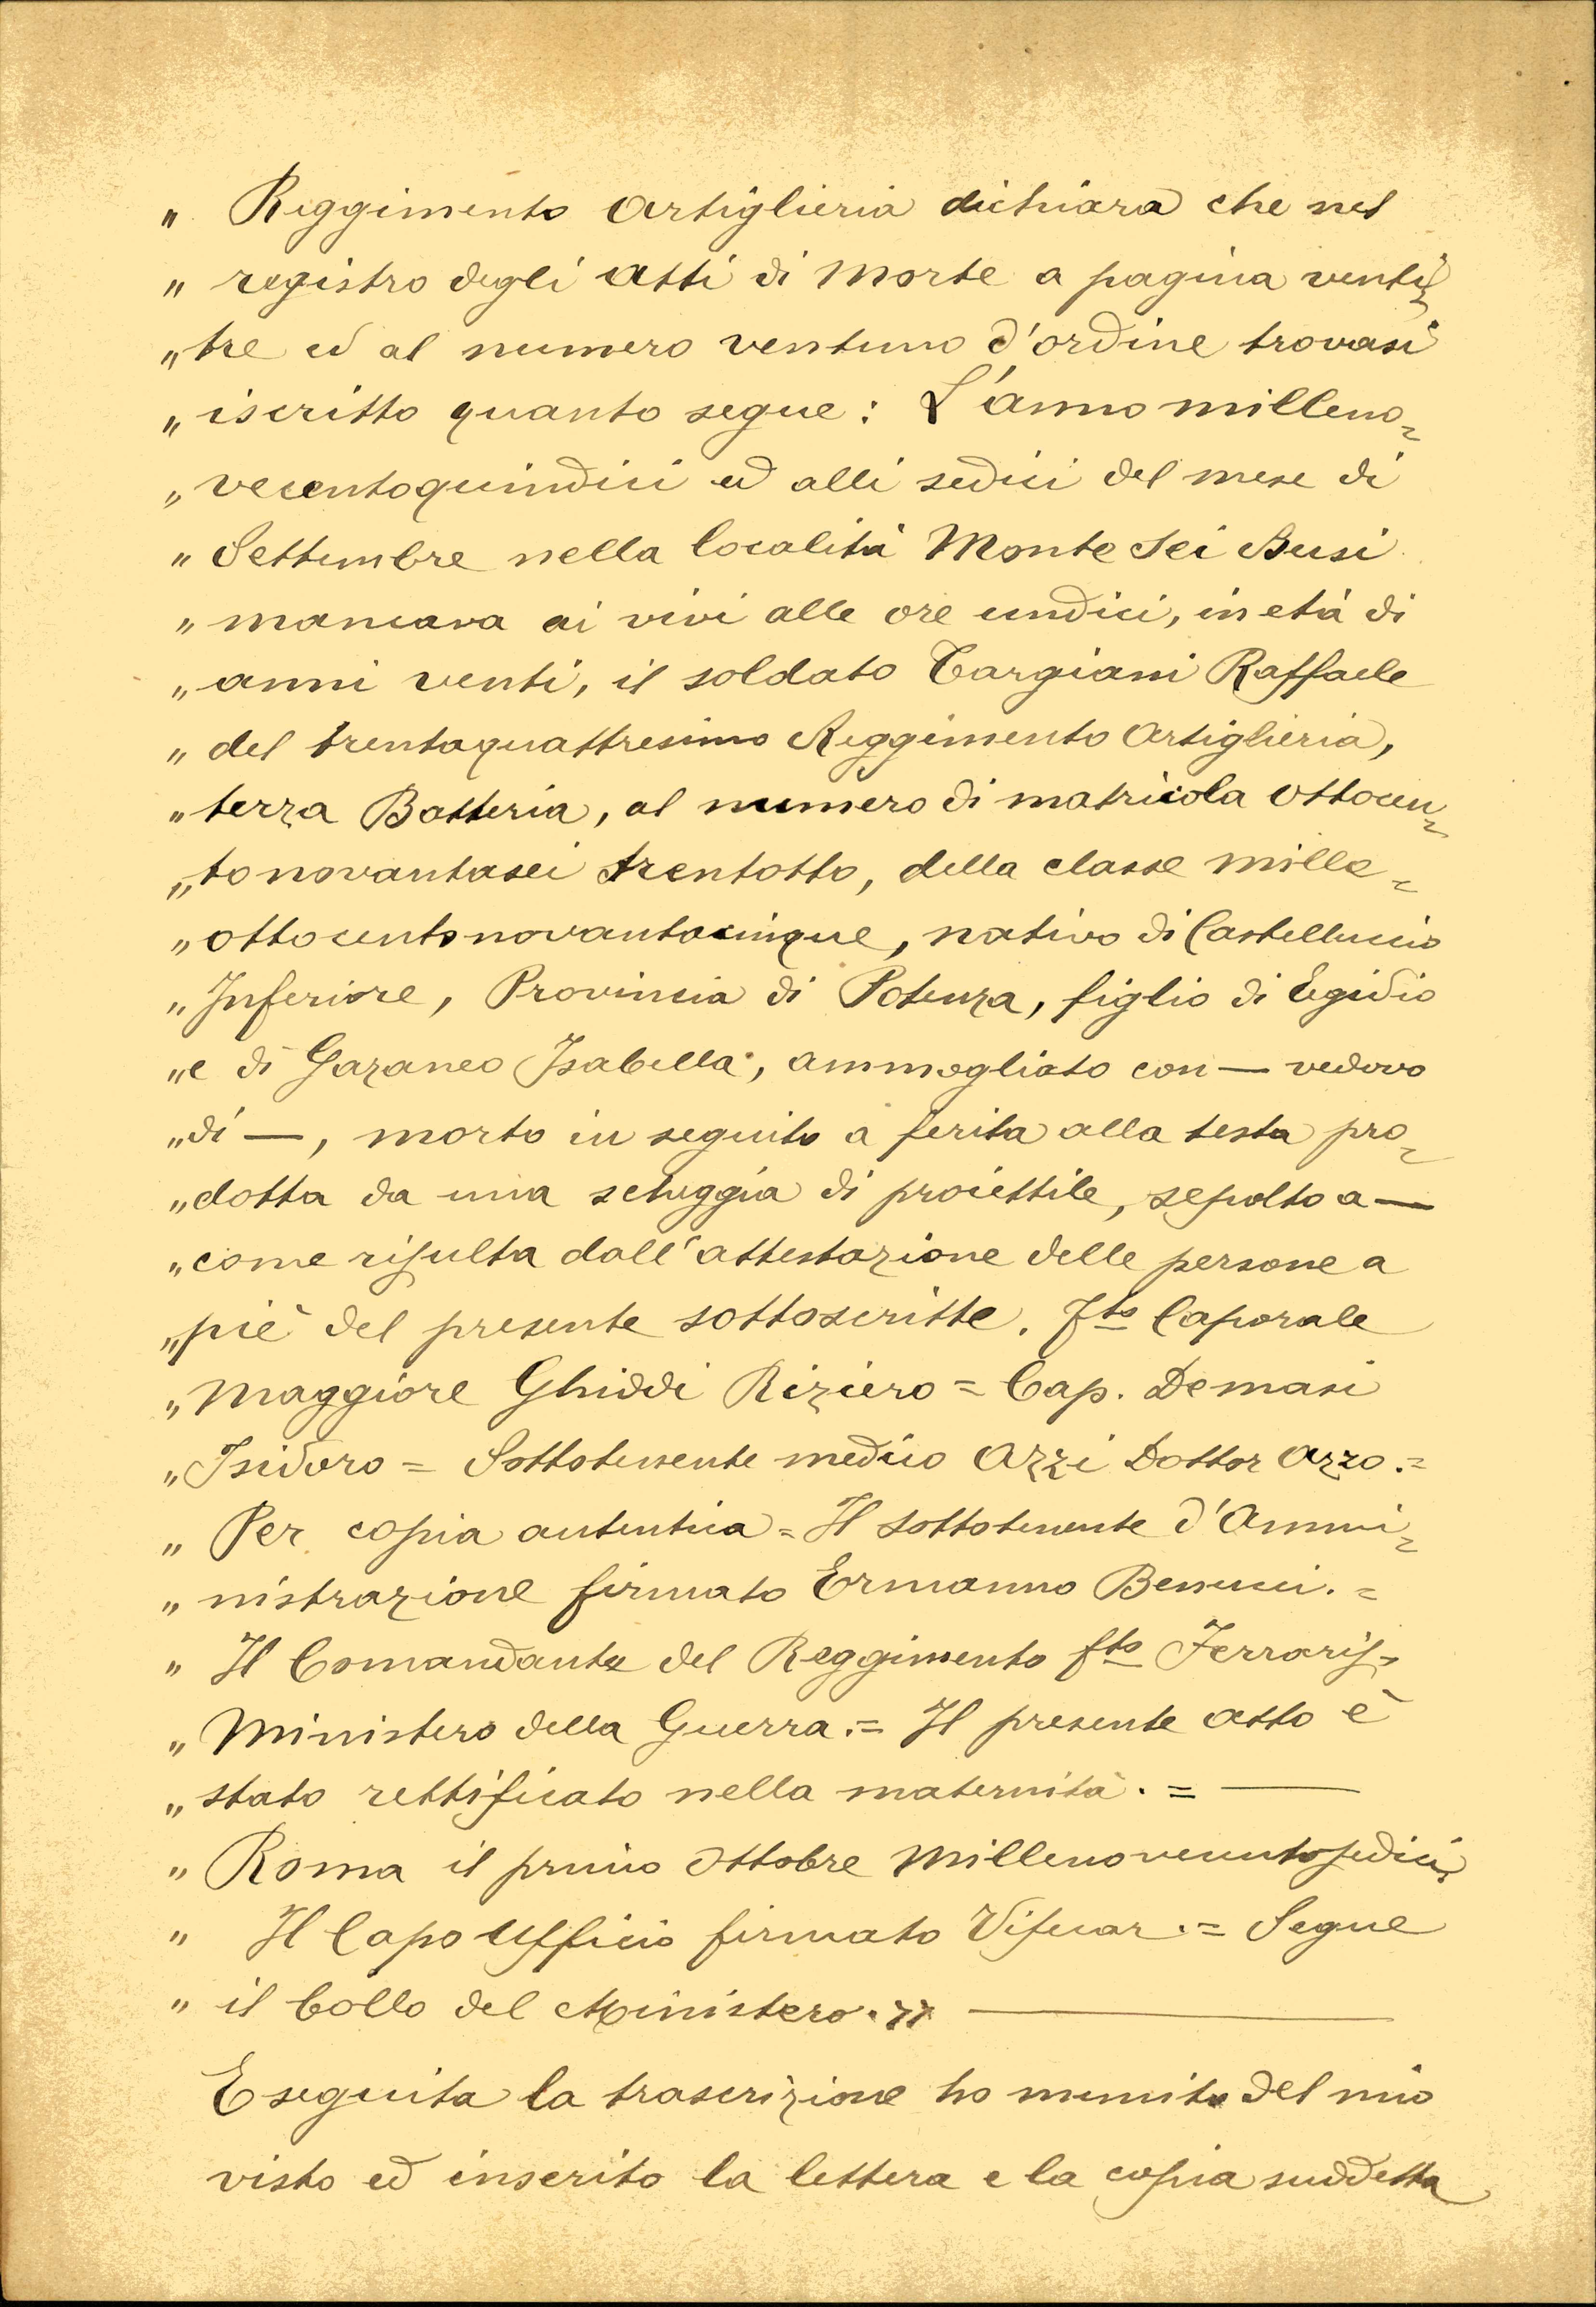 " Reggimento Artiglieria dichiara che nel
" registro degli atti di morte a pagina venti=
" tre ed al numero ventuno d'ordine trovasi
" iscritto quanto segue: L'anno milleno=
" vecentoquindici ed alli sedici del mese di
" Settembre nella località Monte Sei Busi
" mancava ai vivi alle ore undici, in età di
" anni venti, il soldato Targiani Raffaele
" del trentaquattresimo Reggimento Artiglieria,
" terza Batteria, al numero di matricola ottocen=
" tonovantasei trentotto, della classe mille=
" ottocentonovantacinque, nativo di Castelluccio
" Inferiore, Provincia di Potenza, figlio di Egidio
" e di Gazaneo Isabella, ammogliato con — vedovo
" di —, morto in seguito a ferita alla testa pro=
" dotta da una scheggia di proiettile, sepolto a —
" come risulta dall'attestazione delle persone a
" piè del presente sottoscritte. Fto Caporale
" Maggiore Ghiddi Riziero = Cap. Demasi
" Isidoro = Sottotenente medico Azzi Dottor Azzo.=
" Per copia autentica = Il sottotenente d'Ammi=
" nistrazione firmato Ermanno Benucci.=
" Il Comandante del Reggimento fto Ferraris=
" Ministero della Guerra.= Il presente atto è
" stato rettificato nella maternità.= —
" Roma il primo Ottobre millenovecentosedici
" Il Capo Ufficio firmato =  Segue
" il bollo del Ministero." —
Eseguita la trascrizione ho munito del mio
visto ed inserito la lettera e la copia suddetta